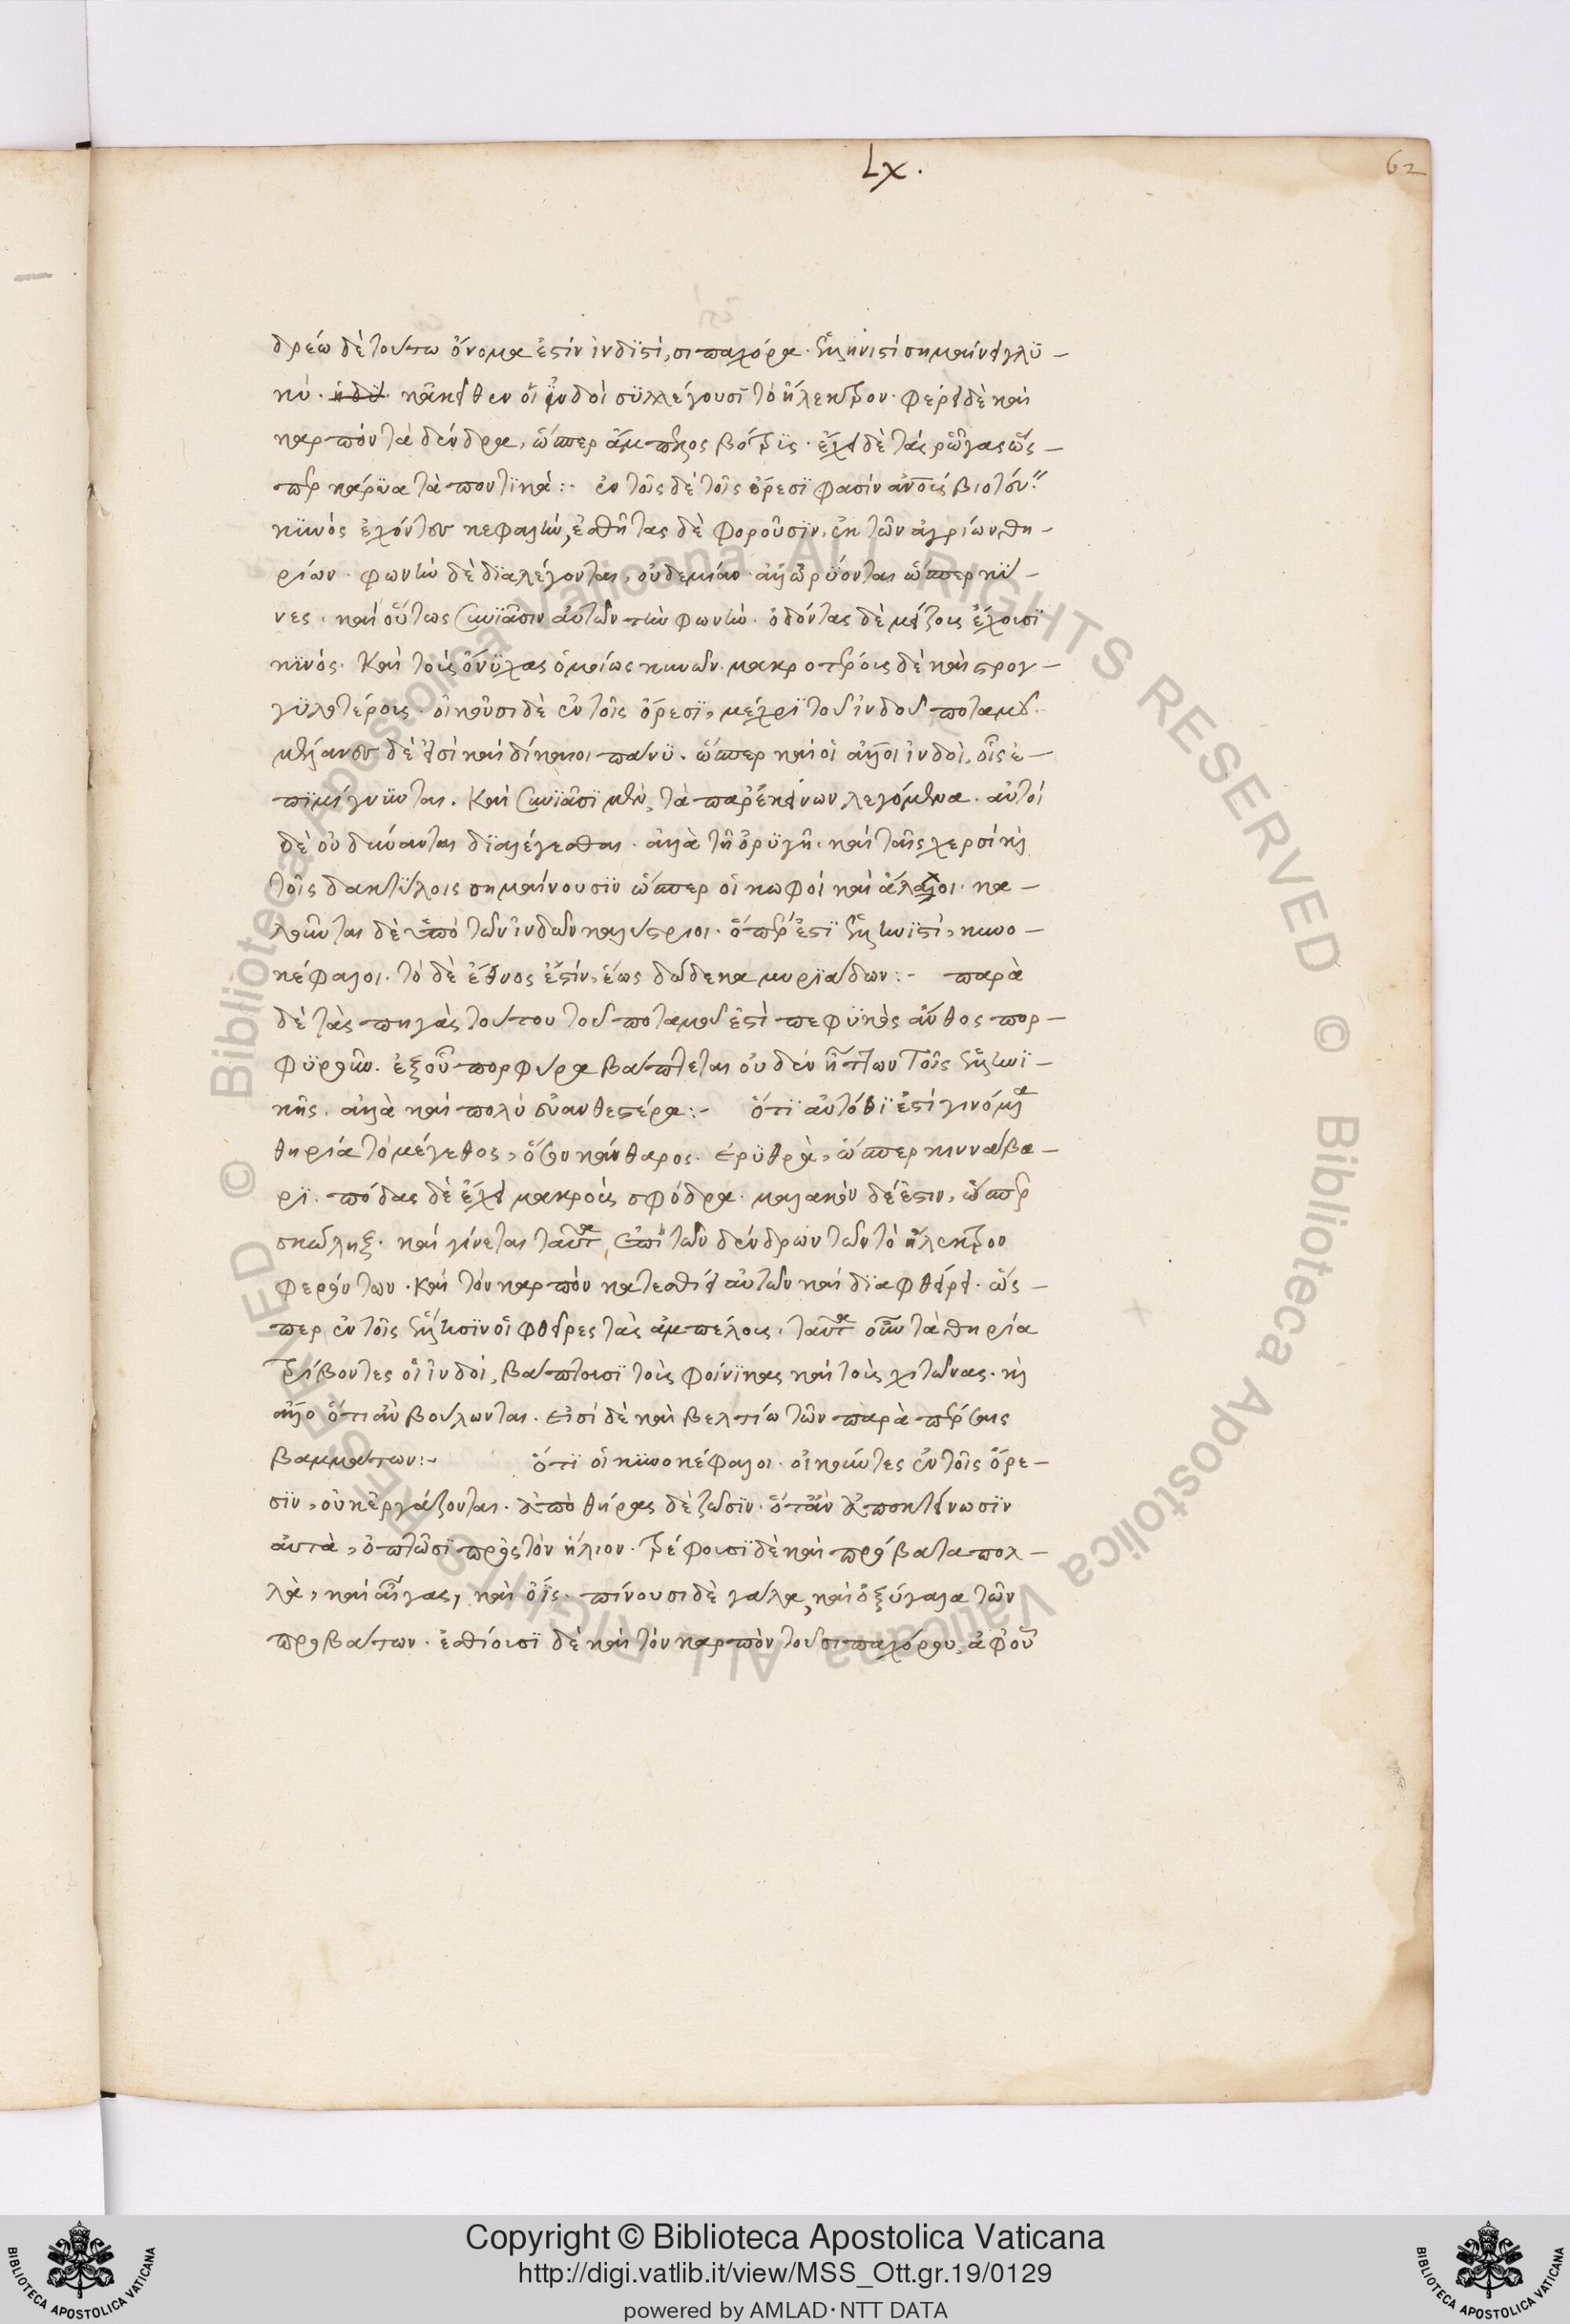 Lx.
62
δρέω δὲ τούτω ὄνομα ἐστὶν ἰνδϊστὶ, σιπαχόρα· ἑλληνιστὶ σημαίνει γλϋ –
κύ· ἡδύ· κἀκεῖθεν οἱ ἰνδοὶ σϋλλέγουσϊ τὸ ἤλεκτρον· φέρει δὲ καὶ
καρπὸν τὰ δένδρα, ὥσπερ ἄμπελος βότρϋς· ἔχει δὲ τὰς ῥῶγας ὥς –
περ κάρϋα τὰ ποντϊκά :· ἐν τοῖς δὲ τοῖς ὄρεσϊ φασὶν ἀνους βιοτεύειν
κϋνὸς ἐχόντων κεφαλὴν, ἐσθῆτας δὲ φοροῦσϊν, ἐκ τῶν ἀγρίων θη –
ρίων· φωνὴν δὲ δϊαλέγονται, οὐδεμίαν· ἀλλ' ὠρϋονται ὥσπερ κϋ –
νες· καὶ οὕτως συνϊᾶσιν αὐτῶν τὴν φωνὴν· ὀδόντας δὲ μείζους ἔχουσϊ
κϋνός· καὶ τοὺς ὄνϋχας ὁμοίως κυνῶν· μακροτέρους δὲ καὶ στρογ –
γϋλοτέρους· οἰκοῦσι δὲ ἐν τοῖς ὄρεσϊ, μέχρϊ τοῦ ἰνδοῦ ποταμοῦ·
μέλανες δὲ εἰσὶ καὶ δίκαιοι πάνϋ· ὥσπερ καὶ οἱ ἄλλοι ἰνδοὶ, οἷς ἐ –
πϊμίγνϋνται· καὶ συνϊᾶσϊ μὲν, τὰ παρ' ἐκείνων λεγόμενα· αὐτοὶ
δὲ οὐ δύνανται δϊαλέγεσθαι· ἀλλὰ τῇ ὀρϋγῇ· καὶ ταῖς χερσὶ καὶ
τοῖς δακτϋλοις σημαίνουσϊν ὥσπερ οἱ κωφοὶ καὶ ἄλαλοι· κα –
λοῦνται δὲ ὑπὸ τῶν ἰνδῶν καλύστριοι· ὅπερ ἐστϊ ἑλληνϊστὶ, κυνο –
κέφαλοι· τὸ δὲ ἔθνος ἐστὶν, ἕως δώδεκα μυρϊάδων :– παρὰ
δὲ τὰς πηγὰς τούτου τοῦ ποταμοῦ ἐστὶ πεφϋκὸς ἄνθος πορ –
φϋροῦν· ἐξ οὗ πορφύρα βάπτεται οὐδὲν ἧττων τοῖς ἑλληνϊ –
κῆς· ἀλλὰ καὶ πολὺ εὐανθεστέρα :– ὅτϊ αὐτόθϊ ἐστὶ γινόμενα
θηρία τὸ μέγεθος, ὅσον κάνθαρος· ἐρϋθρὰ, ὥσπερ κιννάβα –
ρϊ· πόδας δὲ ἔχει μακροὺς σφόδρα· μαλακὸν δέ ἐστιν, ὥσπερ
σκώληξ· καὶ γίνεται ταῦτα, ἐπὶ τῶν δένδρων τῶν τὸ ἤλεκτρον
φερόντων· καὶ τὸν καρπὸν κατεσθίει αὐτῶν καὶ δϊαφθείρει· ὥς –
περ ἐν τοῖς ἕλλησϊν οἱ φθεῖρες τὰς ἀμπέλους· ταῦτα οὖν τὰ θηρία
τρίβοντες οἱ ἰνδοὶ, βάπτουσϊ τοὺς φοίνϊκας καὶ τοὺς χιτῶνας· καὶ
ἄλλο ὅτι ἂν βούλωνται· εἰσὶ δὲ καὶ βελτίω τῶν παρὰ πέρσαις
βαμμάτων :– ὅτϊ οἱ κϋνοκέφαλοι· οἰκοῦντες ἐν τοῖς ὄρε –
σϊν, οὐκ ἐργάζονται· ἀπὸ θήρας δὲ ζῶσϊν· ὅτ' ἂν δ' ἀποκτείνωσϊν
αὐτὰ, ὀπτῶσϊ πρὸς τὸν ἥλιον· τρέφουσϊ δὲ καὶ πρόβατα πολ –
λὰ, καὶ αἶγας, καὶ ὄϊς· πίνουσι δὲ γάλα, καὶ ὀξύγαλα τῶν
προβάτων· ἐσθίουσϊ δὲ καὶ τὸν καρπὸν τοῦ σιπαχόρου, ἀφ' οὗ
© Biblioteca Apostolica Vaticana ALL RIGHTS RESERVED © Biblioteca Apostolica Vaticana ALL RIGHTS RESERVED
Copyright © Biblioteca Apostolica Vaticana
http://digi.vatlib.it/view/MSS_Ott.gr.19/0129
powered by AMLAD·NTT DATA
BIBLIOTECA APOSTOLICA VATICANA
BIBLIOTECA APOSTOLICA VATICANA